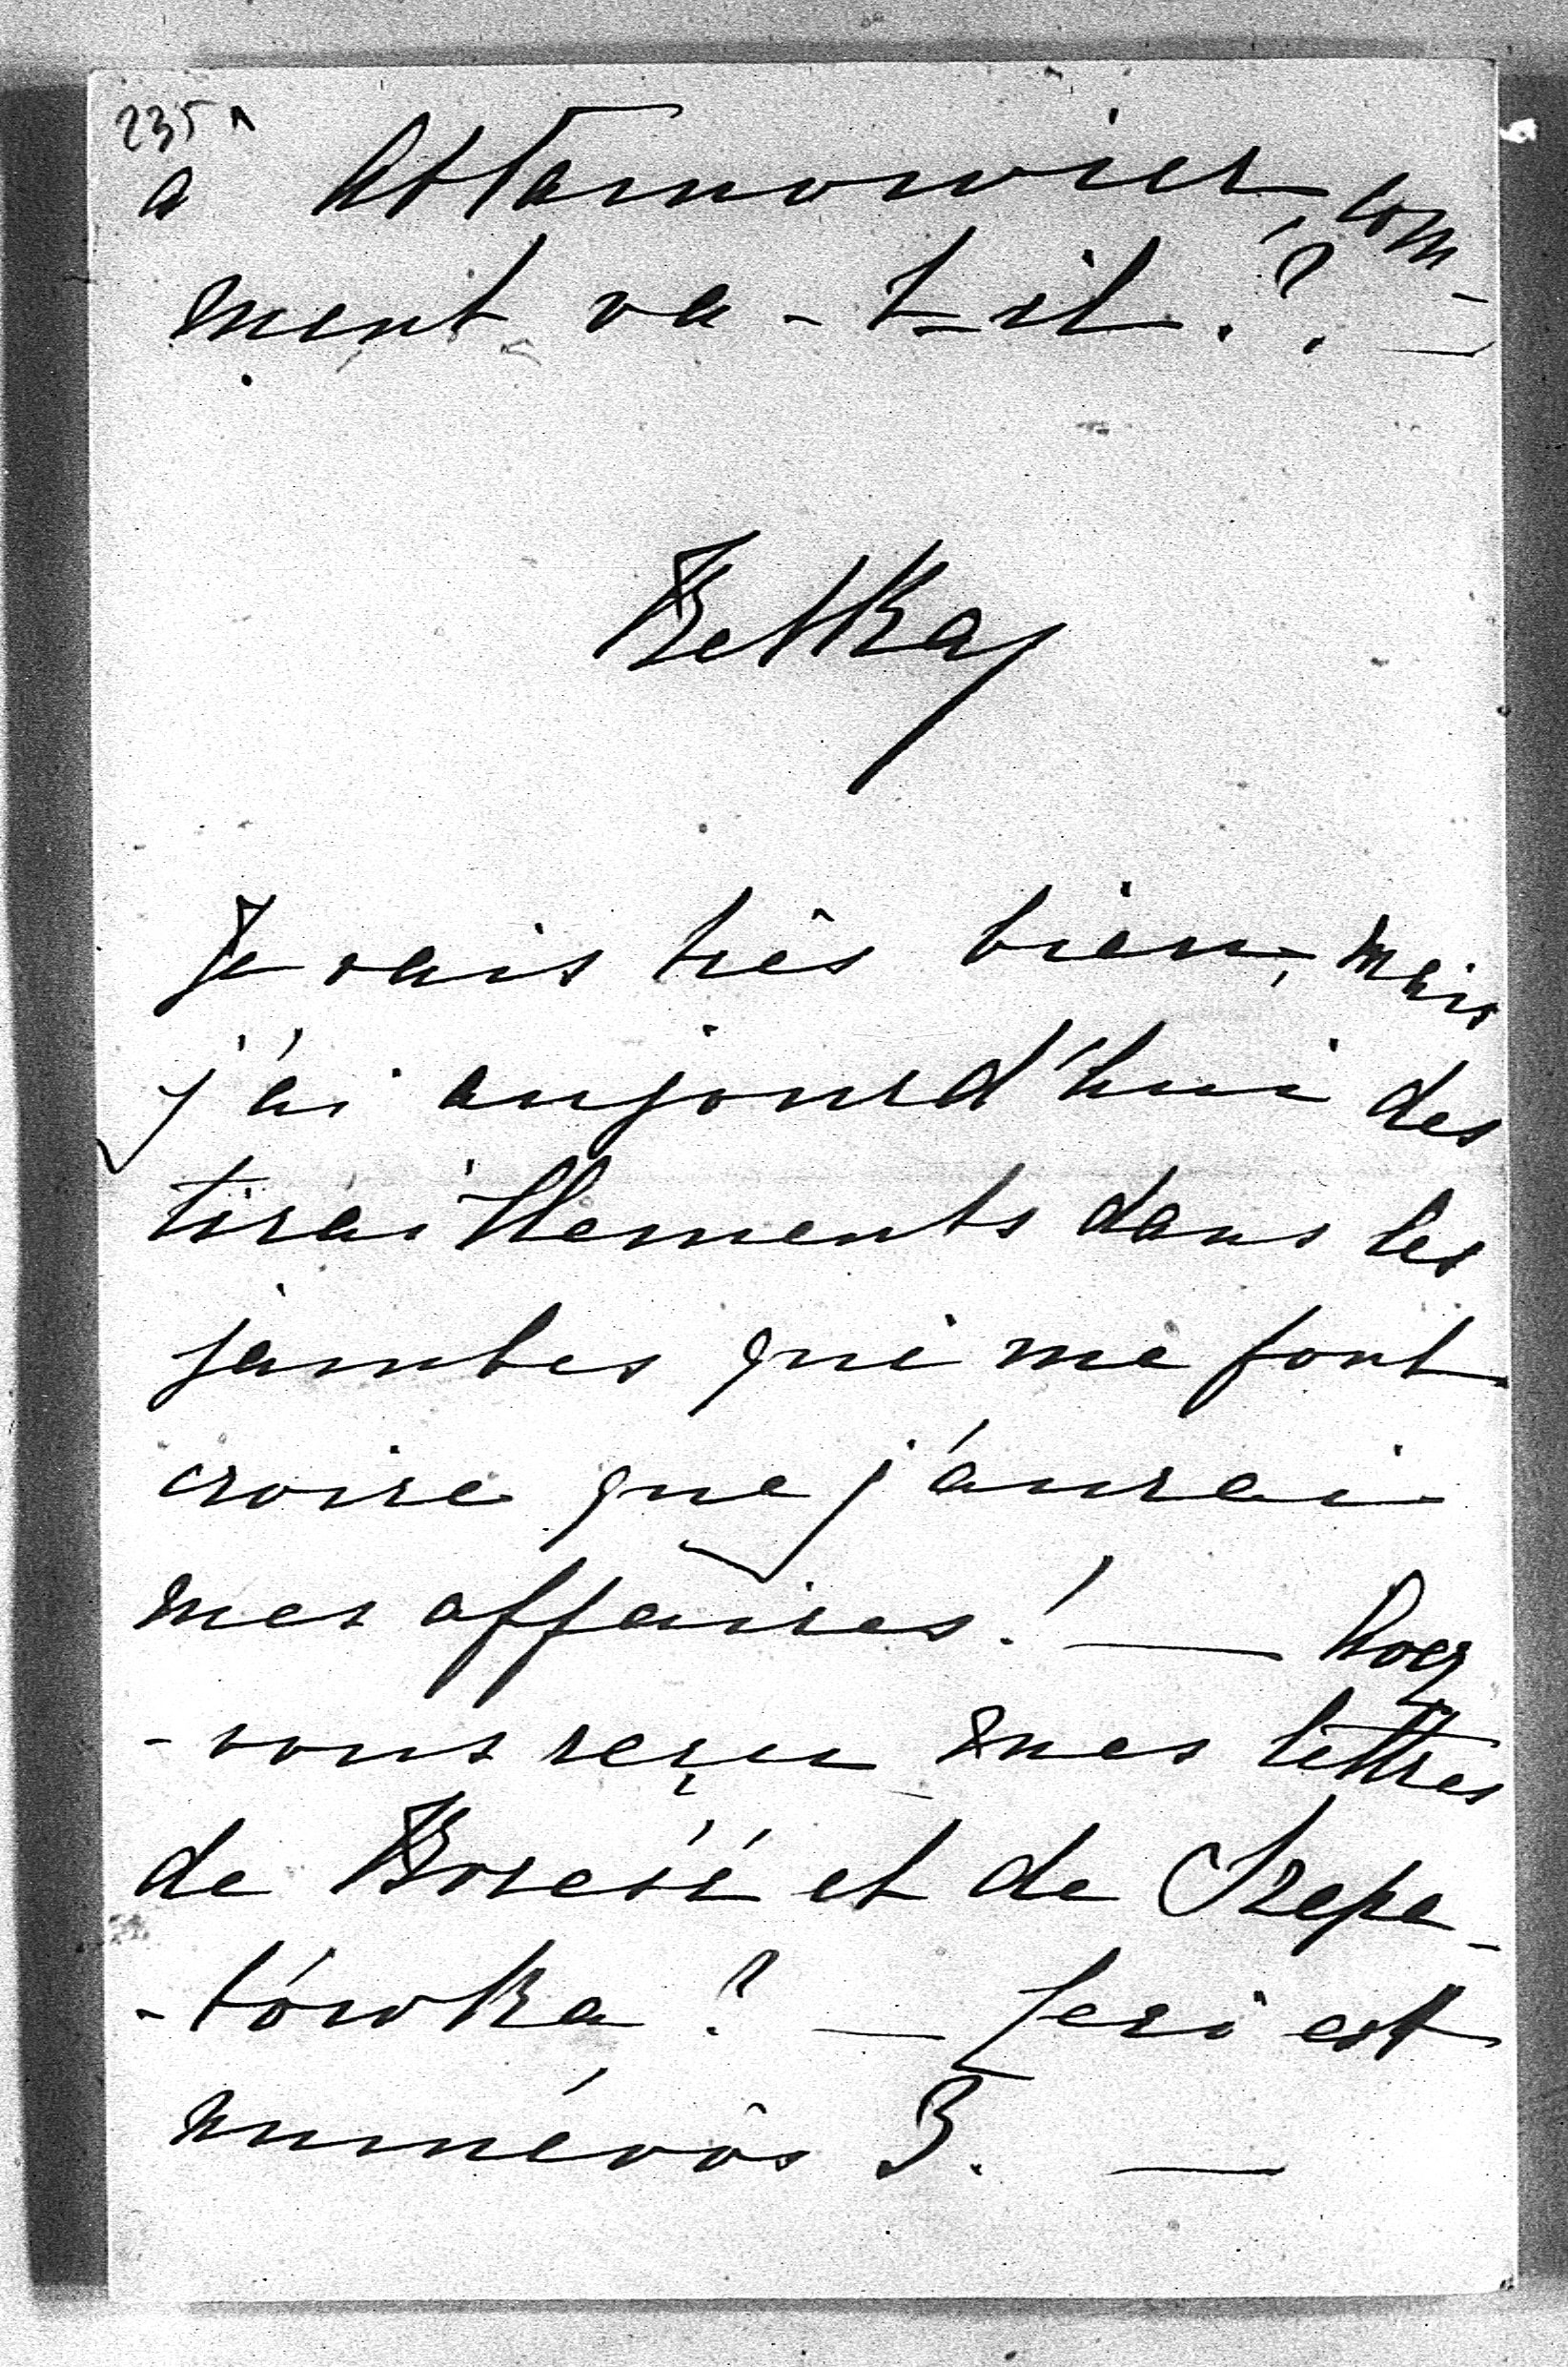 235
a Attamowicz, com-
ment va-t-il.? —
Betka
Je vais très bien, mais
j'ai aujourd'hui des
tiraillements dans les
jambes qui me font
croire que j'aurai
mes affaires! —
-vous reçu mes lettres
de et de Szepe-
-tówka? — Ceci est
numérôs 3. —